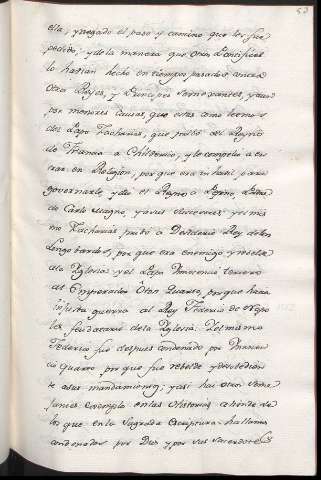 53
ella, y negado el paso y camino que les fue
pedido, y de la manera que otros Pontifices
lo havian hecho en tiempos pasados, contra
otros Reyes, y Principes semexantes, y aun
por menores causas, que estas como leemos
del Papa Zacharias, que privò del Reyno
de Francia a Childerico, y le compelio a en-
trar en Religion, por que era inhavil, para
governarle, y dio el Reyno a Pepino, Padre
de Carlo Magno, y a sus subcesores, y el mis-
mo Zacharias privò a Desiderio Rey de los
Longobardos, por que era enemigo, y rebelde
ala Yglesia, y el Papa Innocencio tercero
al Emperador Oton Quarto, por que hacia
injusta guerra al Rey Federico de Napo
les feudatario de la Yglesia: Y el mismo
Federico fue despues condenado por Innocen-
cio quarto, por que fue rebelde y desobedien
te a sus mandamientos; y asi hai otros seme
jantes exemplos en las Historias, a demàs de
los que en la Sagrada Escriptura hallamos
condenados por Dios, y por sus Sacerdotes